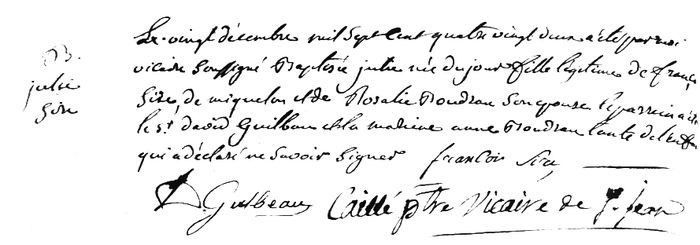 B.
julie
Sire
Le vingt décembre mil Sept Cent quatre vingt deux a été par moi
vicaire Soussigné Baptisée julie née du jour fille légitime de franç
Sire, de miquelon et de Rosalie Boudrau Son epouse le parrein a été
le Sr. david Guilbaux et la mareine anne Boudrau tante de l'enfan
qui a déclaré ne Savoir Signer françois Sire
D. Guilbeaux Caillé ptre Vicaire de St. jean